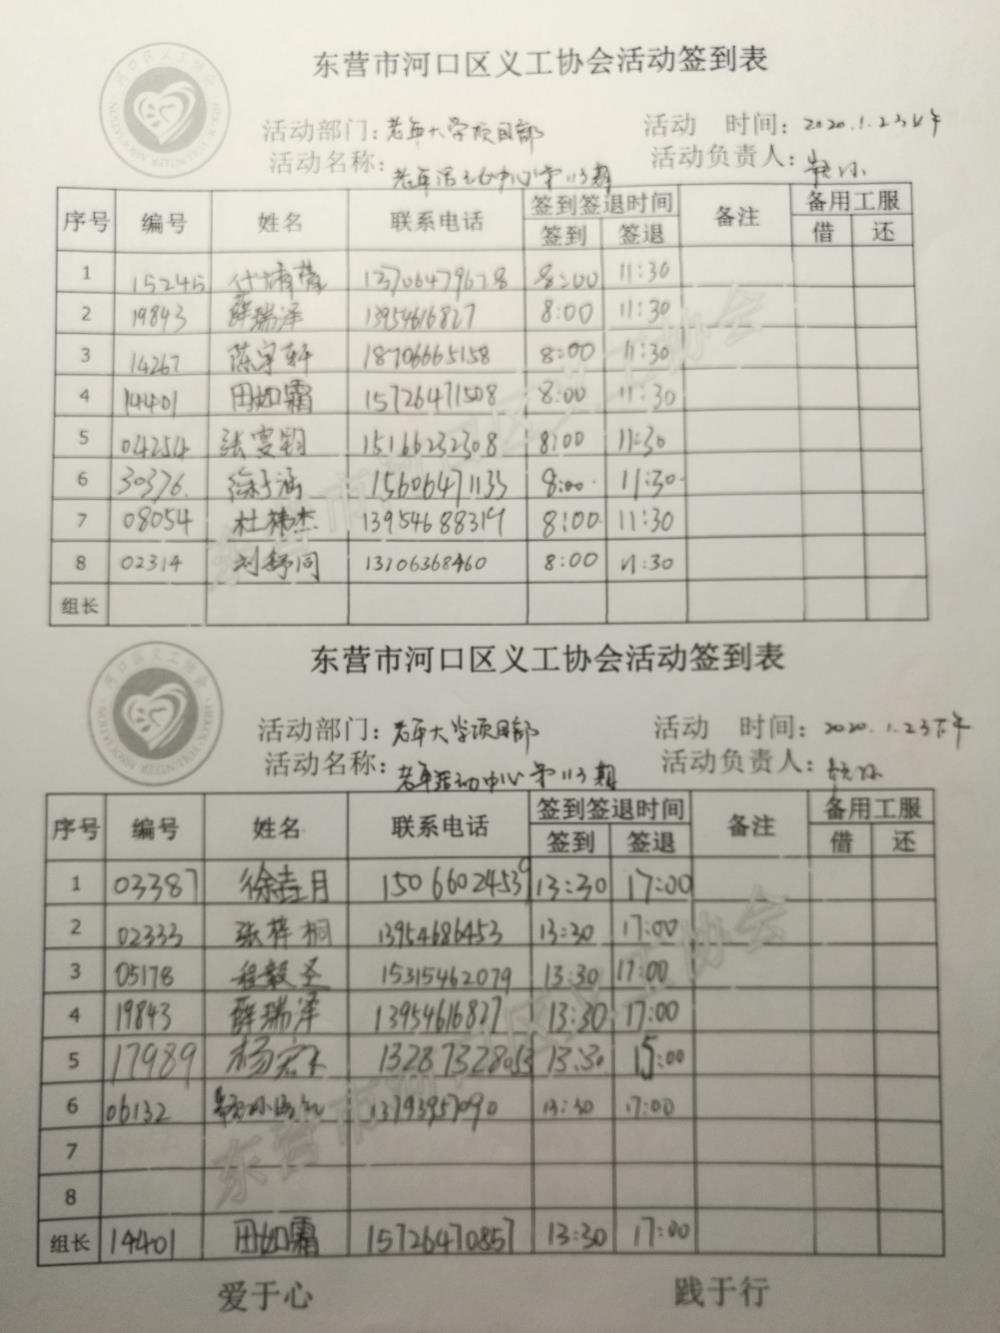 东营市河口区义工协会活动签到表
活动部门：老年大学项目部 活动 时间：2020.1.23上午
活动名称：老年活动中心第113期 活动负责人：
序号 编号 姓名 联系电话 签到签退时间 备注 备用工服
签到 签退 借 还
1 15245 13706479678 8:00 11:30
2 19843 薛瑞泽 13954616827 8:00 11:30
3 14267 陈宇轩 18706665158 8:00 11:30
4 14401 田如霜 15726471508 8:00 11:30
5 04254 张雯钧 15166232308 8:00 11:30
6 30376. 徐子涵 15606471133 8:00 11:30
7 08054 杜祎杰 13954688319 8:00 11:30
8 02314 刘舒同 13706368460 8:00 11:30
组长
东营市河口区义工协会活动签到表
活动部门：老年大学项目部 活动 时间：2020.1.23下午
活动名称：老年活动中心第113期 活动负责人：
序号 编号 姓名 联系电话 签到签退时间 备注 备用工服
签到 签退 借 还
1 03387 徐壵月 15066024539 13:30 17:00
2 02333 张梓桐 13954686453 13:30 17:00
3 05178 程毅圣 15315462079 13:30 17:00
4 19843 薛瑞泽 13954616827 13:30 17:00
5 17989 杨宏 13287328053 13:30 15:00
6 06132 13793957090 13:30 17:00
7
8
组长 14401 田如霜 15726470857 13:30 17:00
爱于心 践于行